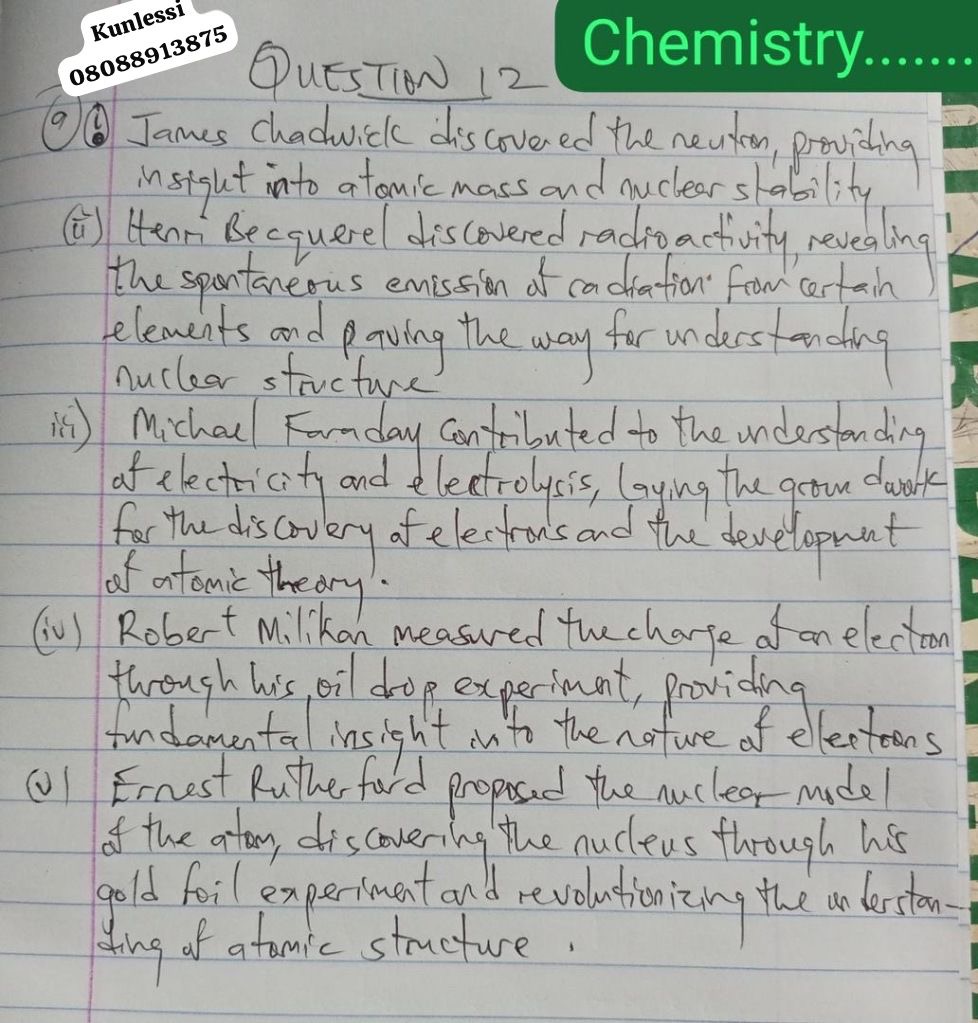 Kunlessi
08088913875
Chemistry.......
QUESTION 12
9 (i) James Chadwick discovered the neutron, providing
insight into atomic mass and nuclear stability
(ii) Henri Becquerel discovered radioactivity, revealing
the spontaneous emission of radiation from certain
elements and paving the way for understanding
nuclear structure
iii) Michael Faraday contributed to the understanding
of electricity and electrolysis, laying the groundwork
for the discovery of electrons and the development
of atomic theory.
(iv) Robert Milikan measured the charge of an electron
through his oil drop experiment, providing
fundamental insight into the nature of electrons
(v) Ernest Rutherford proposed the nuclear model
of the atom, discovering the nucleus through his
gold foil experiment and revolutionizing the understan-
ding of atomic structure.